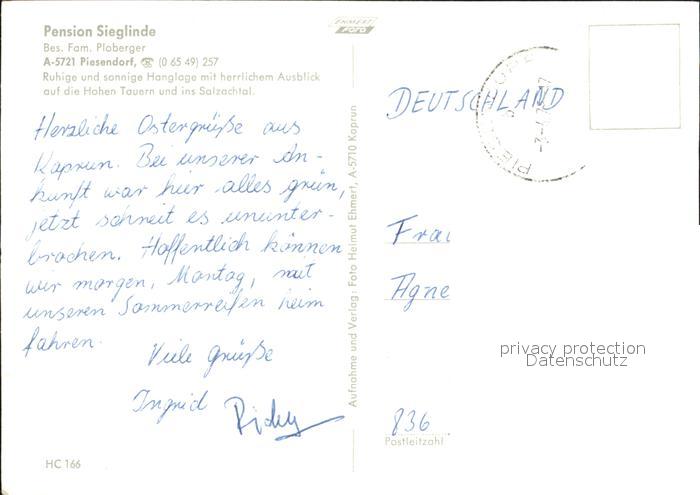 Pension Sieglinde
Bes. Fam. Ploberger
A-5721 Piesendorf, ☎ (0 65 49) 257
Ruhige und sonnige Hanglage mit herrlichem Ausblick
auf die Hohen Tauern und ins Salzachtal.
EHMERT
FOTO
Herzliche Ostergrüße aus
Kaprun. Bei unserer An-
kunft war hier alles grün,
jetzt schneit es ununter-
brochen. Hoffentlich können
wir morgen, Montag, mit
unseren Sommerreifen heim
fahren.
Viele Grüße
Ingrid
HC 166
Aufnahme und Verlag: Foto Helmut Ehmert, A-5710 Kaprun
DEUTSCHLAND
Frau
Agne
privacy protection
Datenschutz
836
Postleitzahl